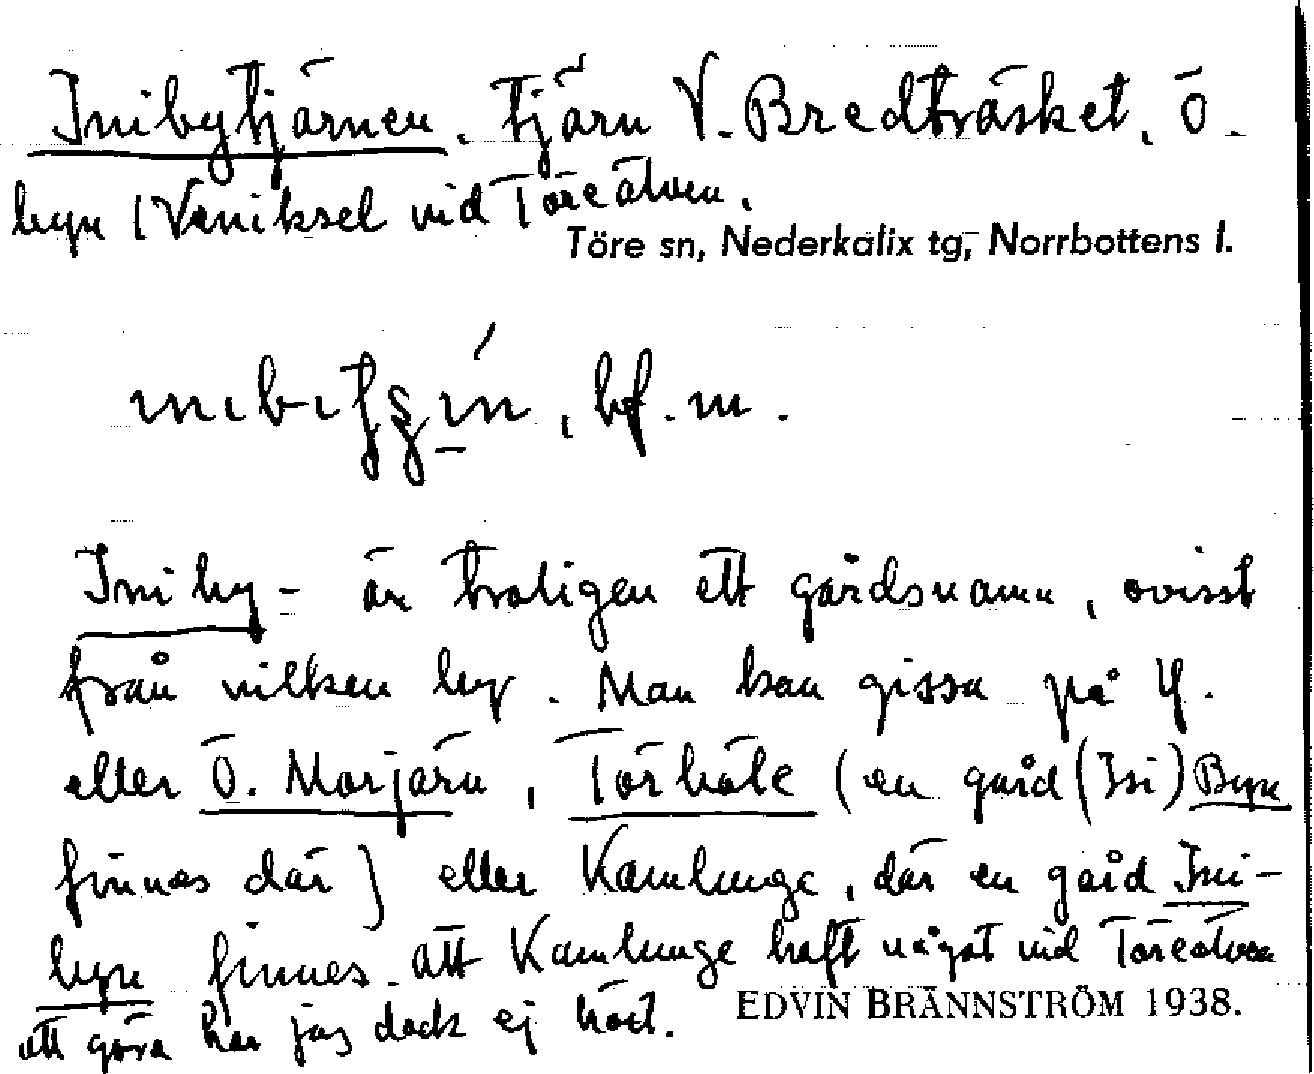 Inibytjärnen. Tjärn V. Bredträsket, Ö.
byn i Väniksel vid Töreälven.
Töre sn, Nederkalix tg, Norrbottens l.
bf. m.
Iniby- är troligen ett gårdsnamn, ovisst
från vilken by. Man kan gissa på Y.
eller Ö. Morjärv, Törböle (en gård (Ini) Byn
finnes där) eller Kamlunge, där en gård Ini-
byn finnes. Att Kamlunge haft något vid Töreälven
att göra har jag dock ej hört.
EDVIN BRÄNNSTRÖM 1938.